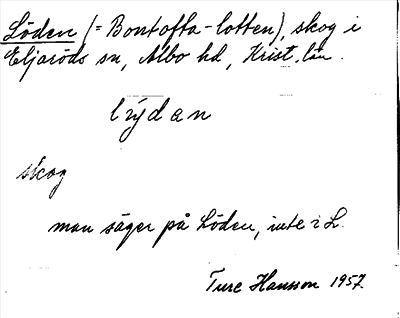 Löden (= Bontofta-lotten), skog i
Eljaröds sn, Albo hd, Krist. län.
lýdan
skog
man säger på Löden, inte i L.
Ture Hansson 1957